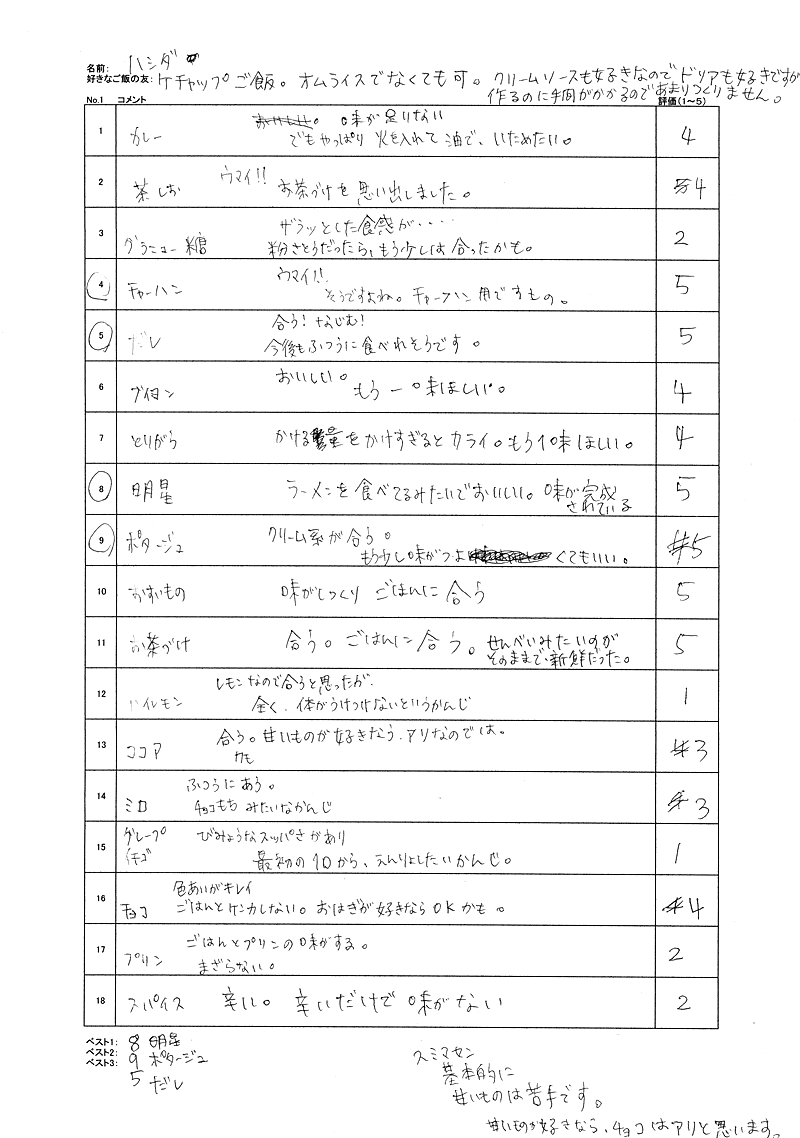 名前: ハシダ
好きなご飯の友: ケチャップご飯。オムライスでなくても可。クリームソースも好きなので ドリアも好きですが
作るのに手間がかかるのであまりつくりません。
No.1 コメント 評価(1～5)
1 カレー 味が足りない
でもやっぱり 火を入れて 油で、いためたい。 4
2 茶しお ウマイ!!
お茶づけを思い出しました。 4
3 グラニュー糖 ザラッとした食感が・・・・
粉さとうだったら、もう少しは合ったかも。 2
4 チャーハン ウマイ!!
そうですよね。チャーハン用ですもの。 5
5 だし 合う!なじむ!
今後もふつうに食べれそうです。 5
6 ブイヨン おいしい。
もう一味ほしい。 4
7 とりがら かける量をかけすぎるとカライ。もう1味ほしい。 4
8 明星 ラーメンを食べてるみたいでおいしい。味が完成
されている 5
9 ポタージュ クリーム系が合う。
もう少し味がつよくてもいい。 5
10 おすいもの 味がしっくり ごはんに合う 5
11 お茶づけ 合う。ごはんに合う。せんべいみたいのが
そのままで新鮮だった。 5
12 ハイレモン レモンなので合うと思ったが、
全く、体がうけつけないというかんじ 1
13 ココア 合う。甘いものが好きなら、アリなのでは。
かも 3
14 ミロ ふつうにあう。
チョコもちみたいなかんじ 3
15 グレープ
イチゴ びみょうなスッパさがあり
最初の1口から、えんりょしたいかんじ。 1
16 チョコ 色あいがキレイ
ごはんとケンカしない。おはぎが好きならOKかも。 4
17 プリン ごはんとプリンの味がする。
まざらない。 2
18 スパイス 辛い。辛いだけで味がない 2
ベスト1: 8 明星
ベスト2: 9 ポタージュ
ベスト3: 5 だし
スミマセン
基本的に
甘いものは苦手です。
甘いものが好きなら、チョコはアリと思います。